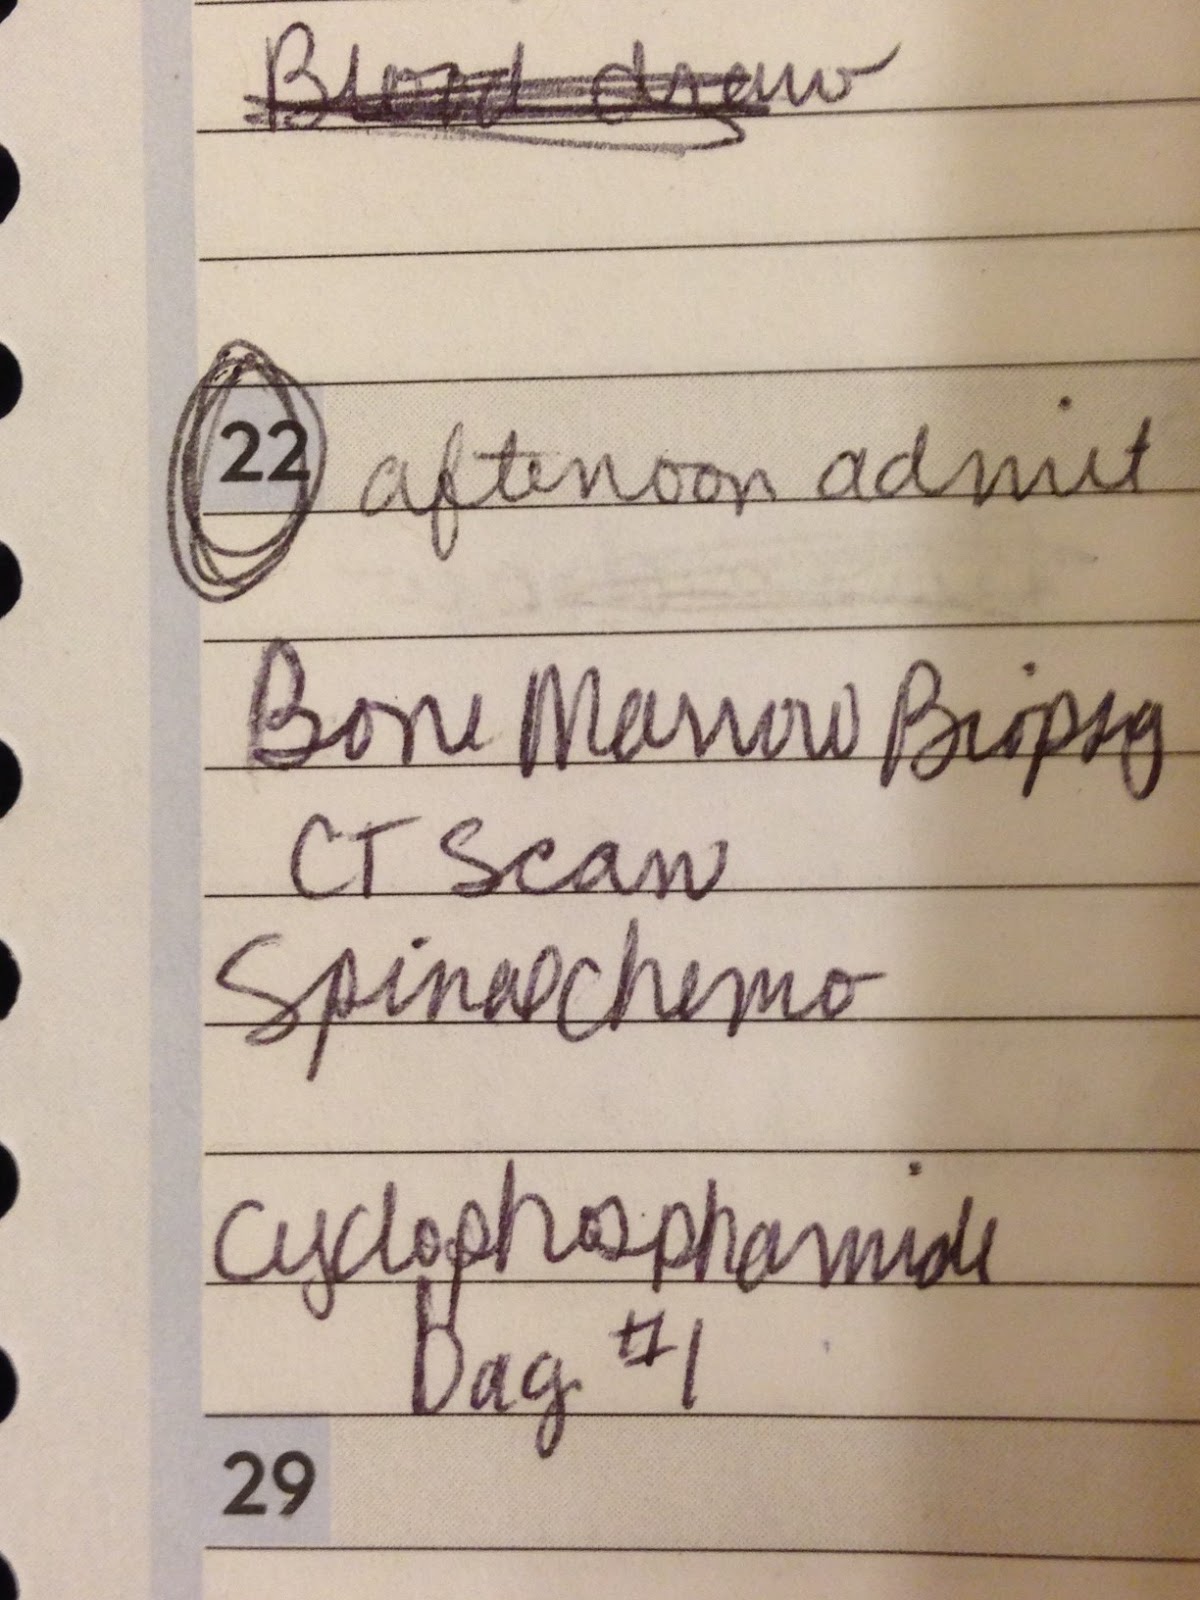 Blood draw
22 afternoon admit
Bone Marrow Biopsy
CT Scan
Spinal Chemo
Cyclophosphamide
Bag #1
29